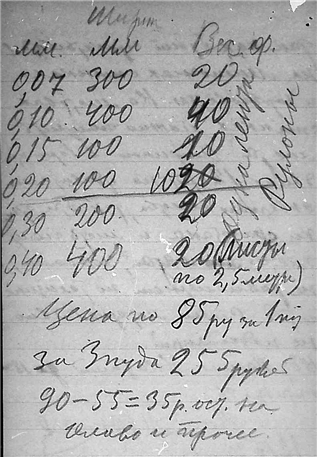 Ширт
мм. мм Вес ф.
0,07 300 20
0,10 400 40
0,15 100 10
0,20 100 1020
0,30 200 20
0,40 400 20 (Листы
по 2,5 метра)
лента
Рулоны
Цена по 85 ру за 1 пуд
за 3 пуда 255 рублей
90-55=35 р. ост. на
олово и прочее.